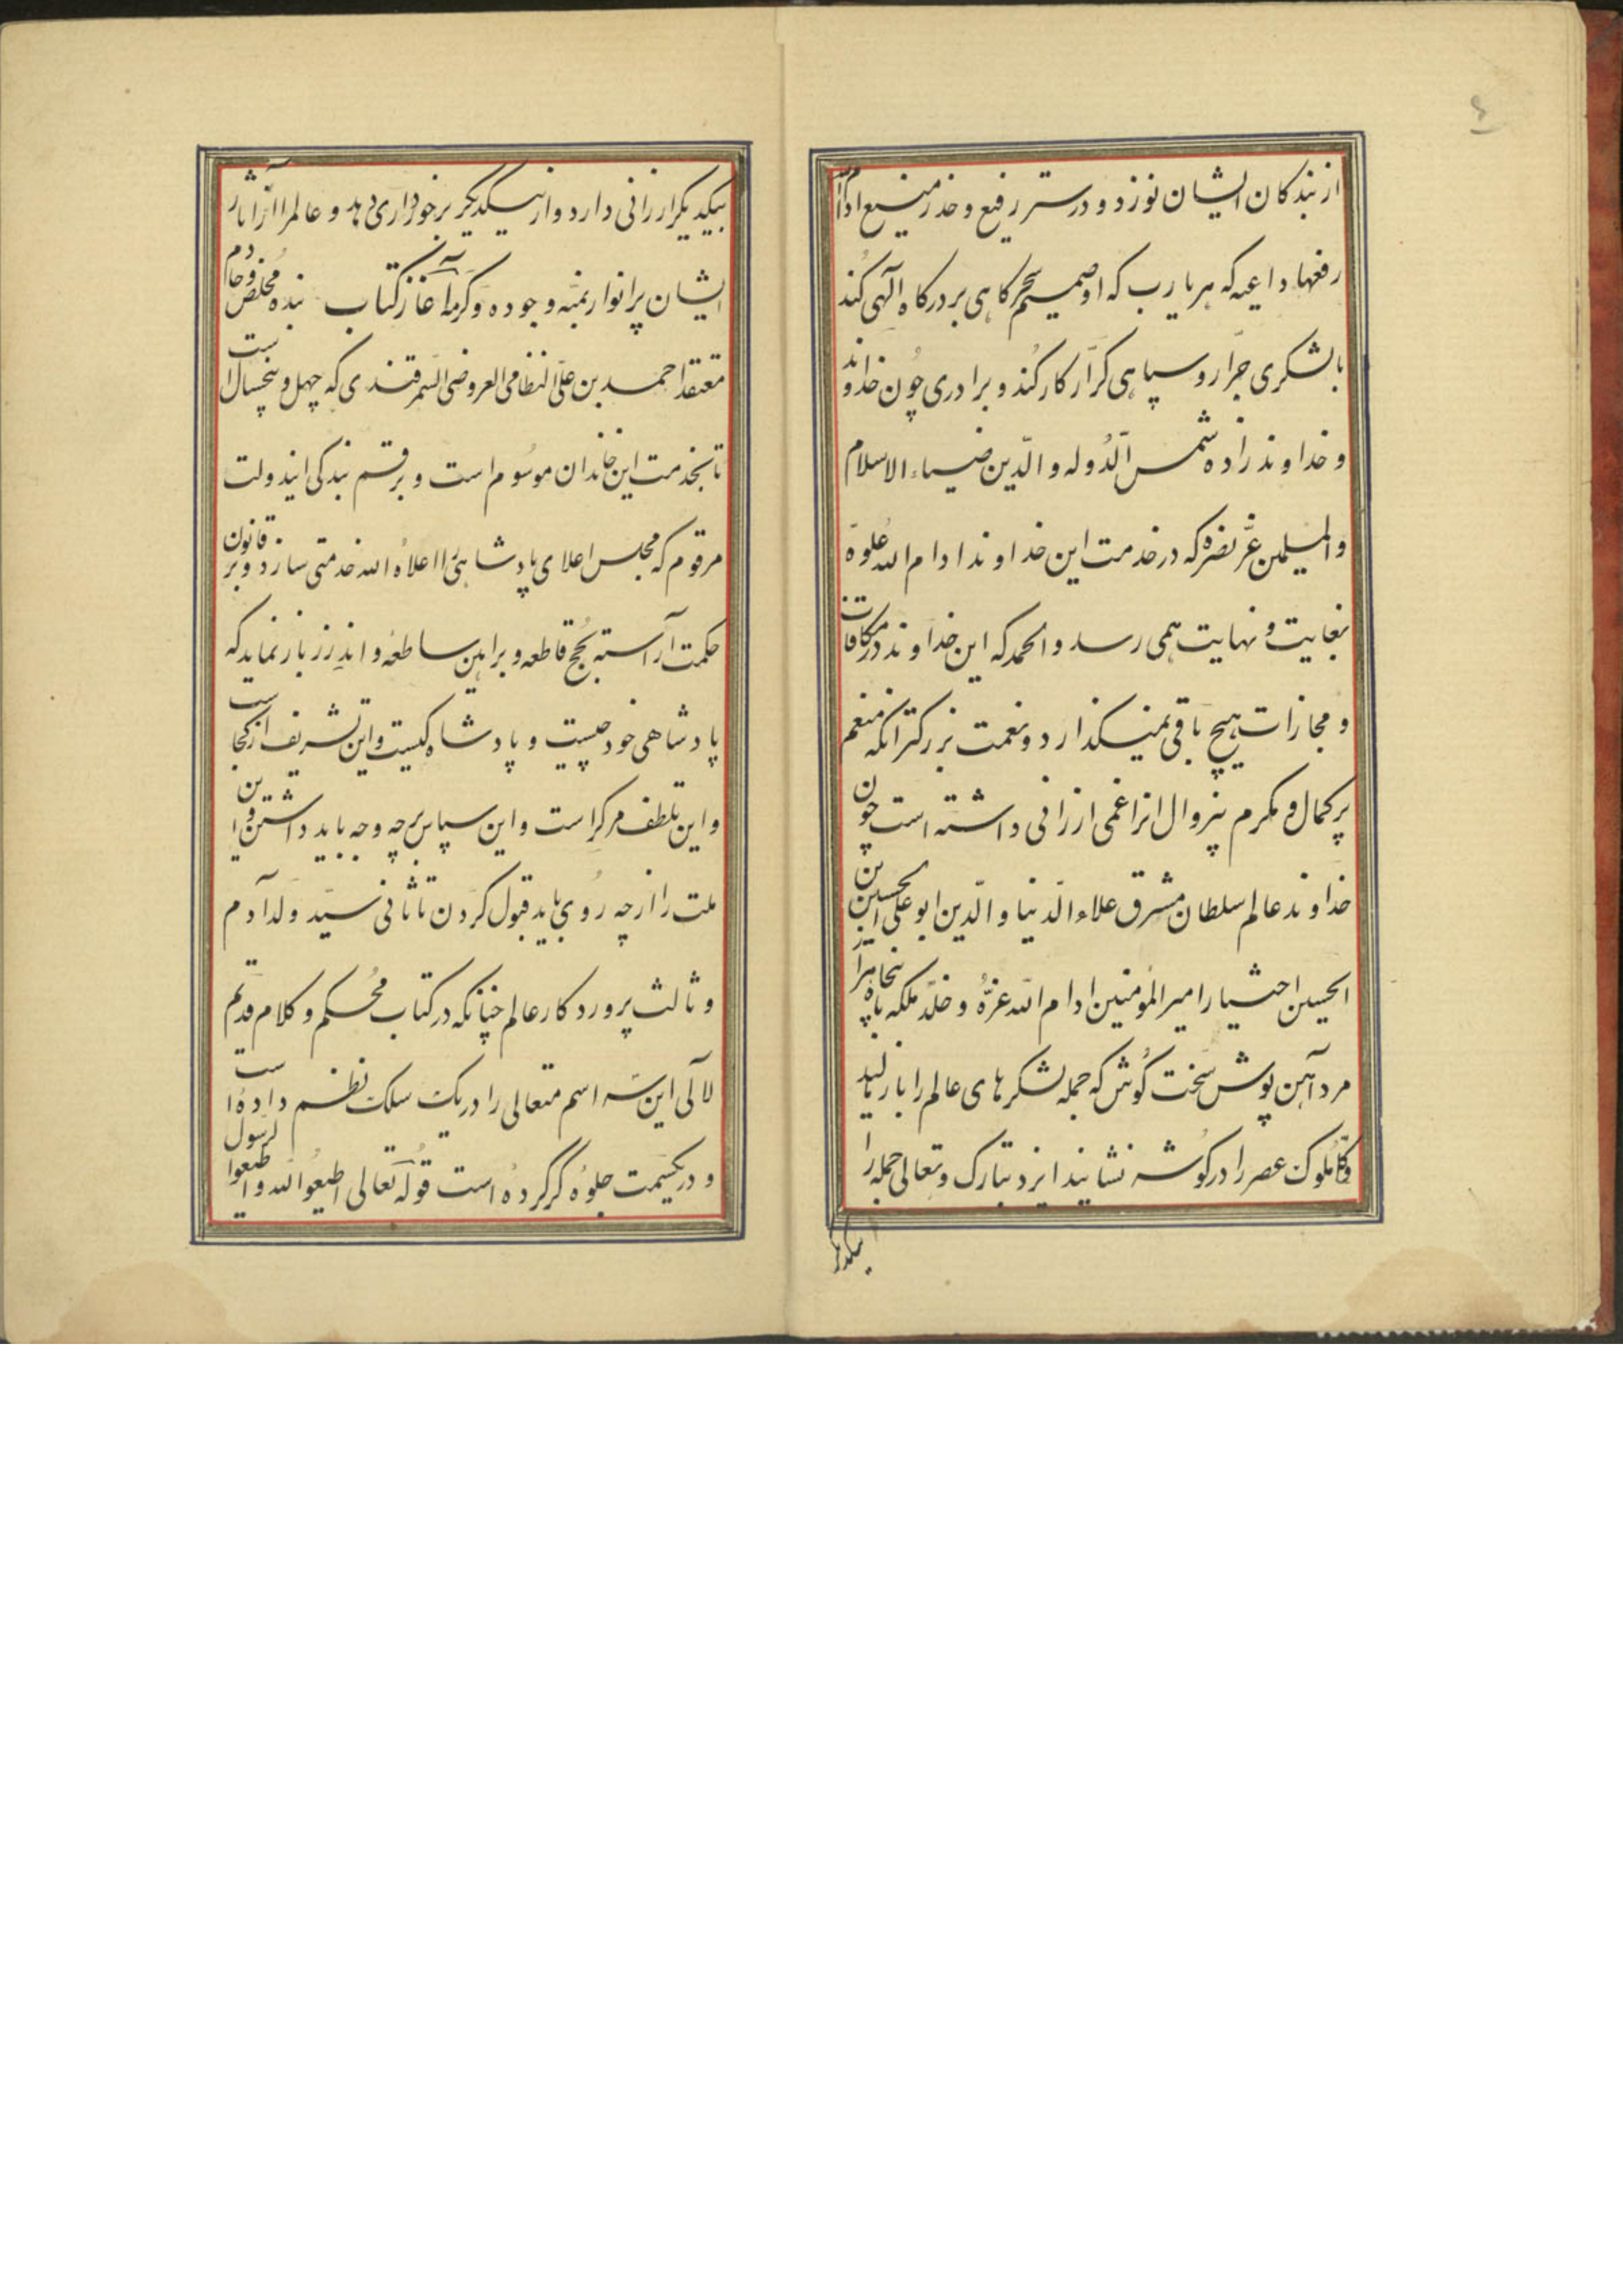 ٤
از بندگان ایشان نوزد و در ستر رفیع و خدر منیع ادام الله
رفعها داعیه که هر یارب که او صمیم سحرگاهی بر درگاه الهی کند
بالشکری جرّار و سپاهی کرّار کار کند و برادری چون خداوند
و خداوندزاده شمس الدّوله و الدّین ضیاء الاسلام
و المسلمین عزّ نصره که در خدمت این خداوند ادام الله علوه
بغایت و نهایت همی رسد و الحمد که این خداوند در مکافات
و مجازات هیچ باقی نمیگذارد و نعمت بزرگتر آنکه منعم
پرکمال و مکرم بیزوال او را عمی ارزانی داشته است چون
خداوند عالم سلطان مشرق علاء الدّنیا و الدّین ابو علی الحسین ابن
الحسین اختیار امیر المومنین ادام الله عزّه و خلّد ملکه با پنجاه هزار
مرد آهن پوش سخت کوش که جمله لشکرهای عالم را باز مالید
و کلّ ملوک عصر را در گوشه نشانید ایزد تبارک و تعالی جمله را
بیکدیگر
بیکدیگر ارزانی دارد و از یکدیگر برخورداری دهاد و عالم را از آثار
ایشان پر انوار بمنّه و جوده و کرمه آغاز کتاب بنده مخلص و خادم
معتقد احمد بن علی النظامی العروضی السّمرقندی که چهل و پنجسال است
تا بخدمت این خاندان موسوم است و برقم بندگی این دولت
مرقوم که مجلس اعلای پادشاهی را اعلاه الله خدمتی سازد و بر قانون
حکمت آراسته بحجج قاطعه و براهین ساطعه و اندرز باز نماید که
پادشاهی خود چیست و پادشاه کیست و این تشریف از کجاست
و این تلطف مر کراست و این سپاس بر چه وجه باید داشتن و این
ملت را از چه روی باید قبول کردن تا ثانی سیّد ولد آدم
و ثالث پروردگار عالم چنانکه در کتاب محکم و کلام قدیم
لآلی این سه اسم متعالی را در یک سلک نظم داده است
و در یکسمت جلوه گر کرده است قوله تعالی اطیعوا الله و اطیعوا الرسول